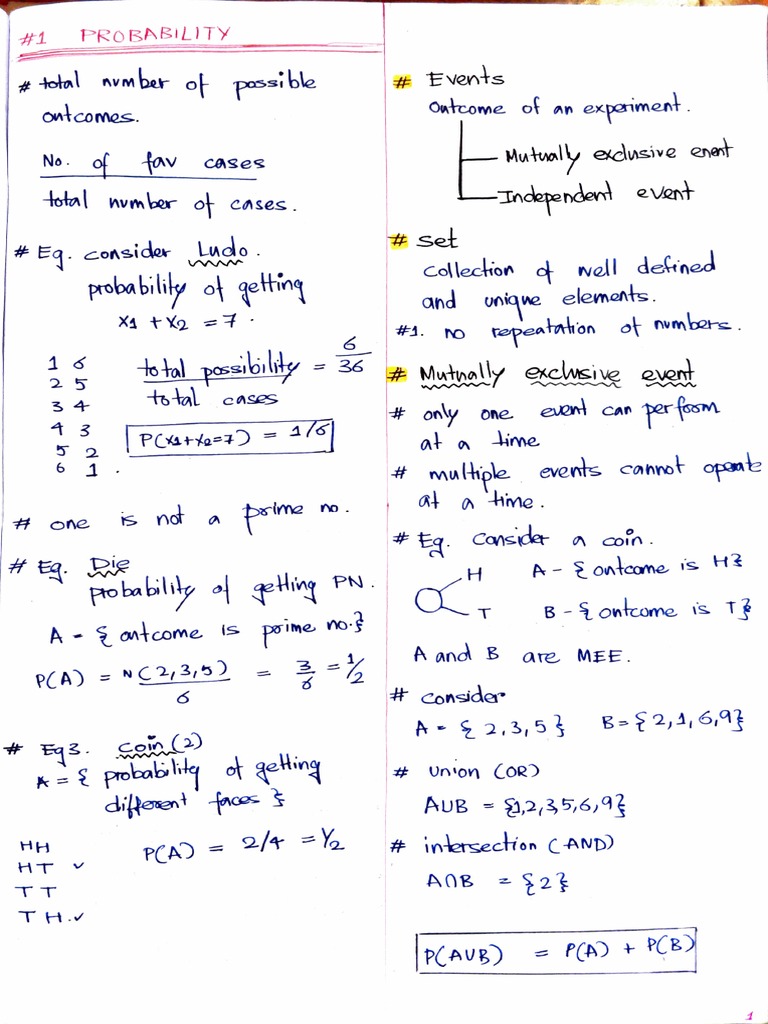 #1 PROBABILITY
# total number of possible
outcomes.
No. of fav cases
total number of cases.
# Eg. consider Ludo.
probability of getting
x1 + x2 = 7.
1 6
2 5
3 4
4 3
5 2
6 1.
total possibility = 6
total cases 36
P(x1+x2=7) = 1/6
# one is not a prime no.
# Eg. Die
probability of getting PN.
A - { outcome is prime no.}
P(A) = N(2,3,5) = 3 = 1/2
6 6
# Eg3. coin (2)
A = { probability of getting
different faces }
HH
HT ✓
TT
TH.✓
P(A) = 2/4 = 1/2
# Events
Outcome of an experiment.
Mutually exclusive event
Independent event
# set
collection of well defined
and unique elements.
#1. no repeatation of numbers.
# Mutually exclusive event
# only one event can perform
at a time
# multiple events cannot operate
at a time.
# Eg. Consider a coin.
H A - { outcome is H}
T B - { outcome is T}
A and B are MEE.
# consider
A = { 2,3,5} B = {2,1,6,9}
# Union (OR)
A∪B = {1,2,3,5,6,9}
# intersection (AND)
A∩B = {2}
P(A∪B) = P(A) + P(B)
1